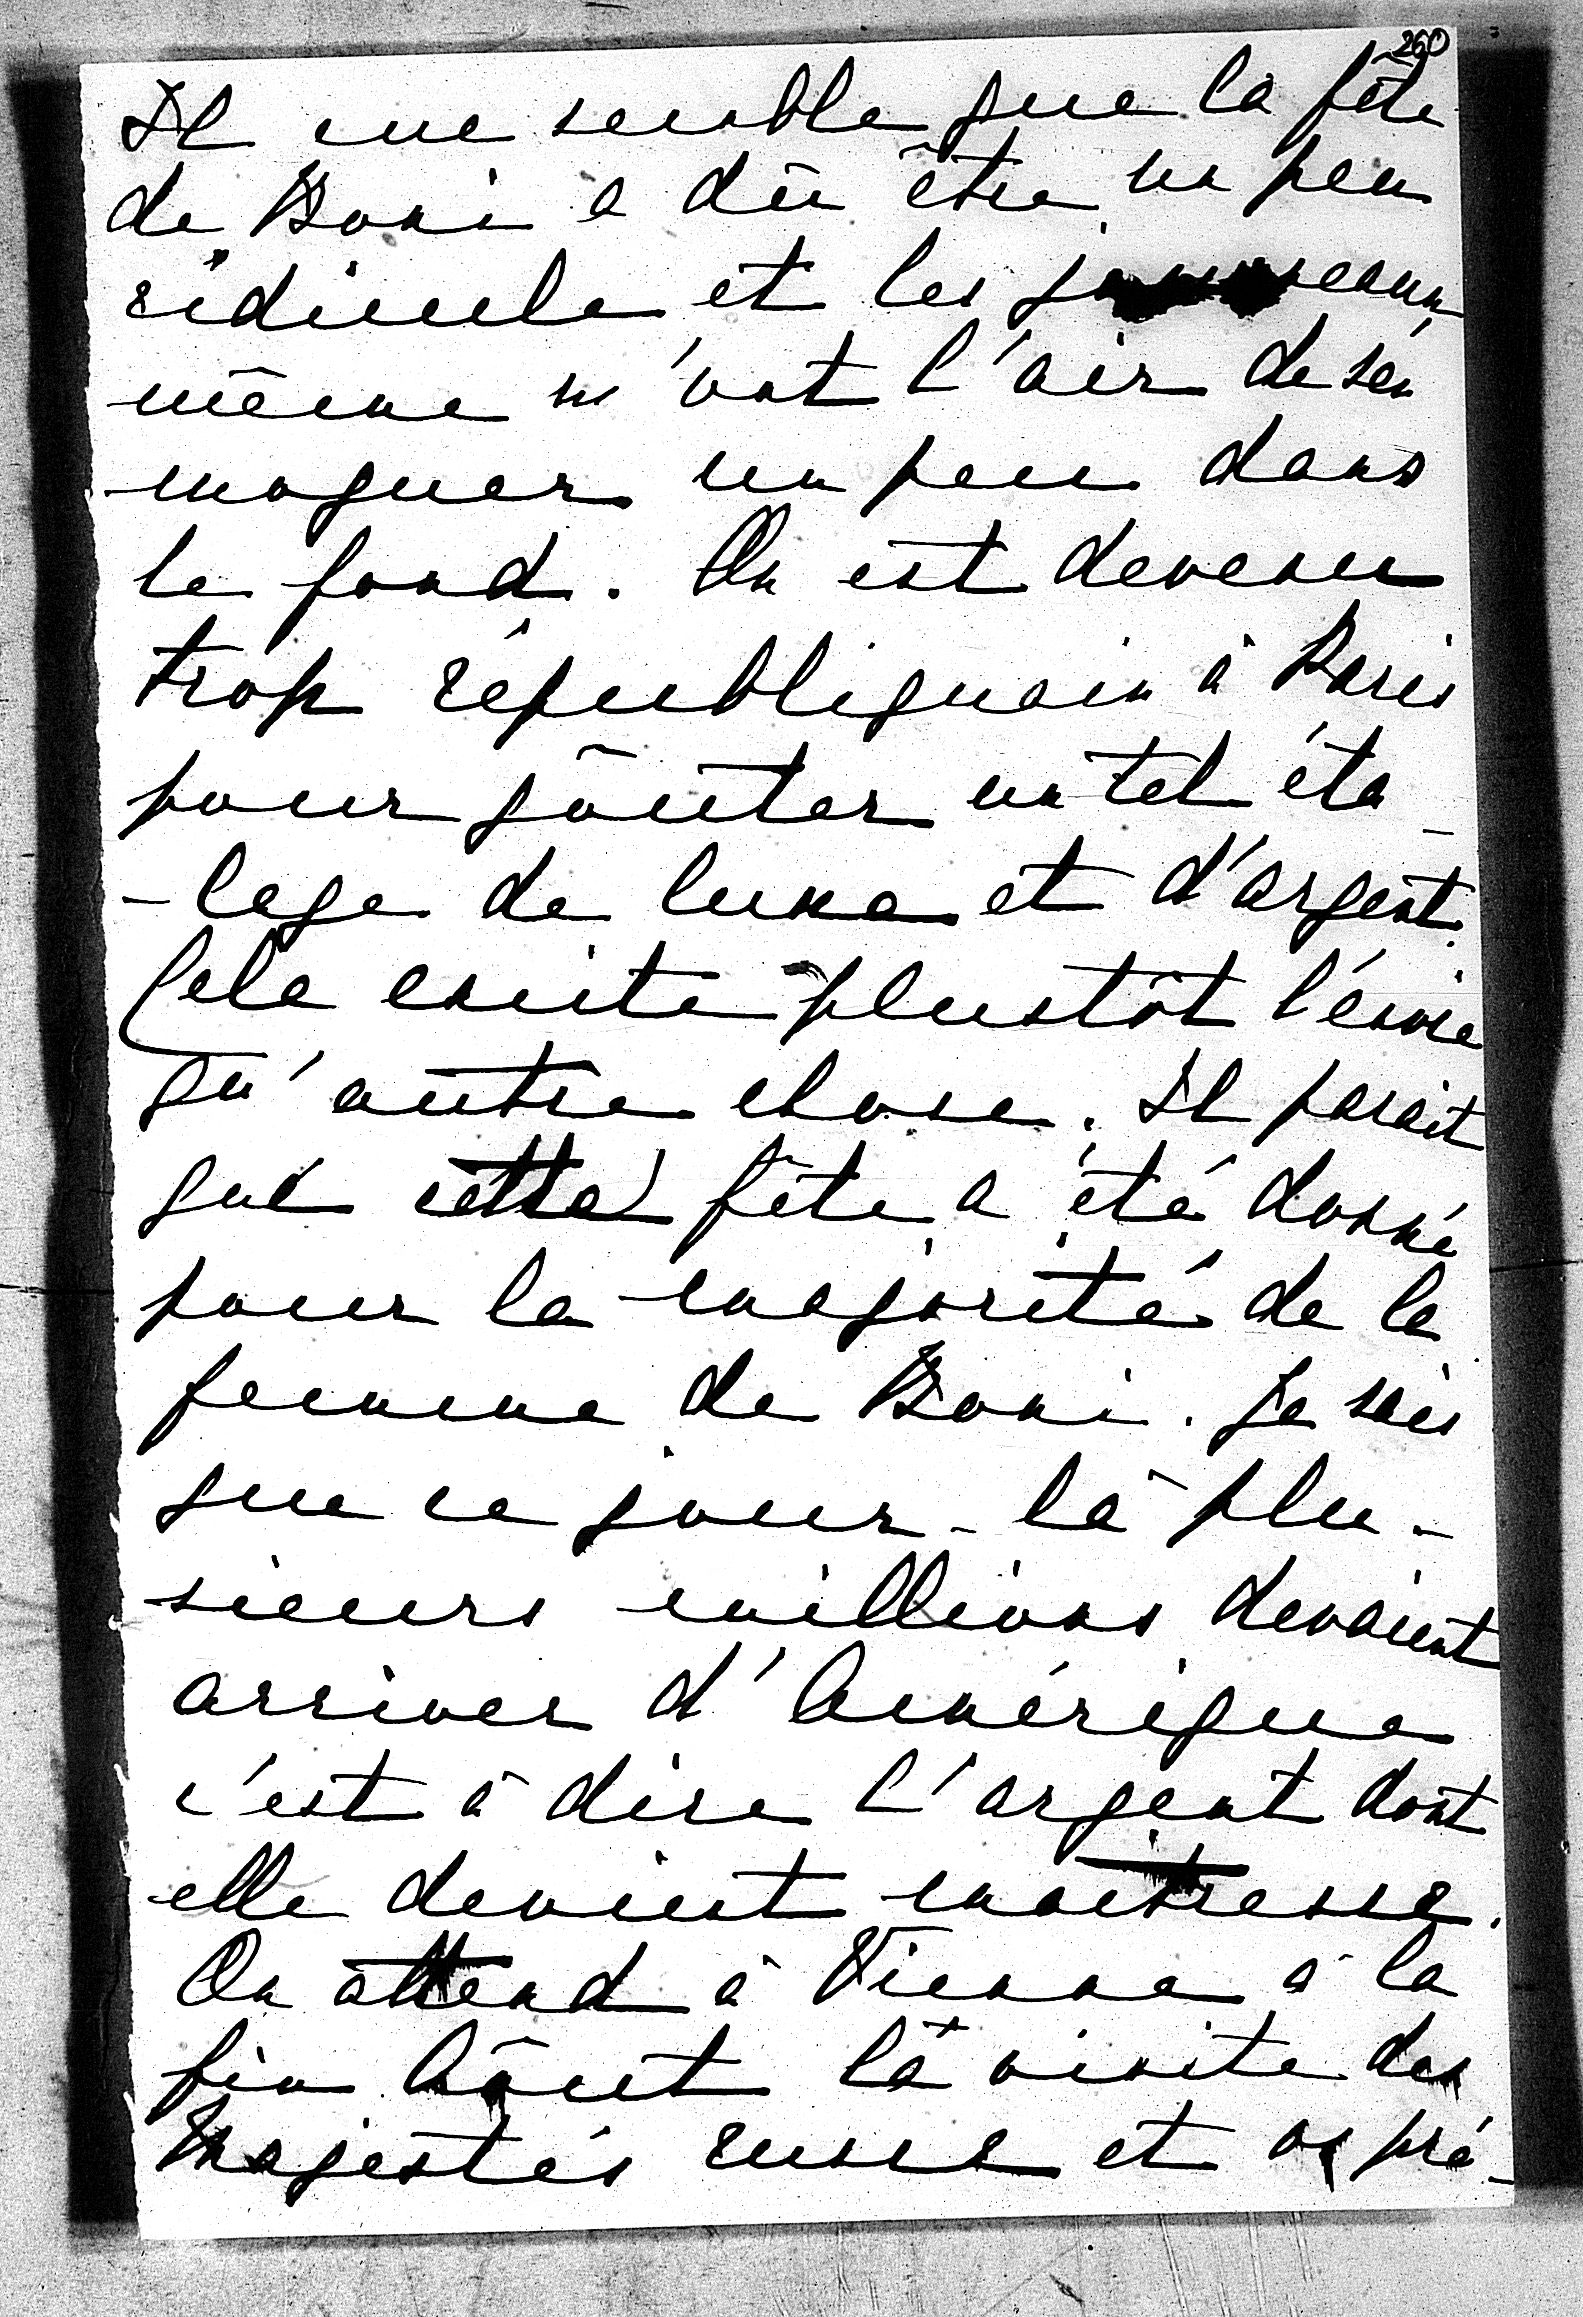 260
Il me semble que la fête
de Boni a dû être un peu
ridicule et les journeaux
même m'ont l'air de s'en
moquer un peu dans
le fond. On est devenu
trop républiquain à Paris
pour goûter un tel éta-
-lage de luxe et d'argent.
Cela excite plustôt l'envie
qu'autre chose. Il parait
que cette fête a été donné
pour la majorité de la
femme de Boni. Je sais
que ce jour-là plu-
sieurs millions devaient
arriver d'Amérique
c'est à dire l'argent dont
elle devient maitresse.
On attend à Vienne à la
fin Août la visite des
Majestés russes et on pré-